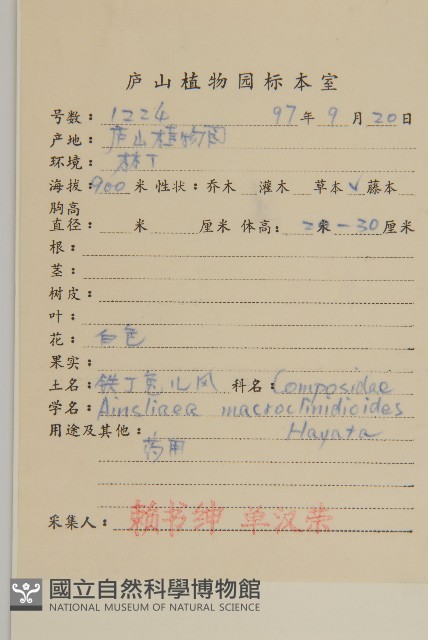 庐山植物园标本室
号数：1224 97年9月20日
产地：庐山植物园
环境：林下
海拔：900米 性状：乔木 灌木 草本✓藤本
胸高
直径： 米 厘米 体高： 30厘米
根：
茎：
树皮：
叶：
花：白色
果实：
土名：铁丁兔儿风 科名：Composidae
学名：Ainsliaea macroclinidioides
用途及其他： Hayata
药用
采集人：赖书绅 单汉荣
國立自然科學博物館
NATIONAL MUSEUM OF NATURAL SCIENCE